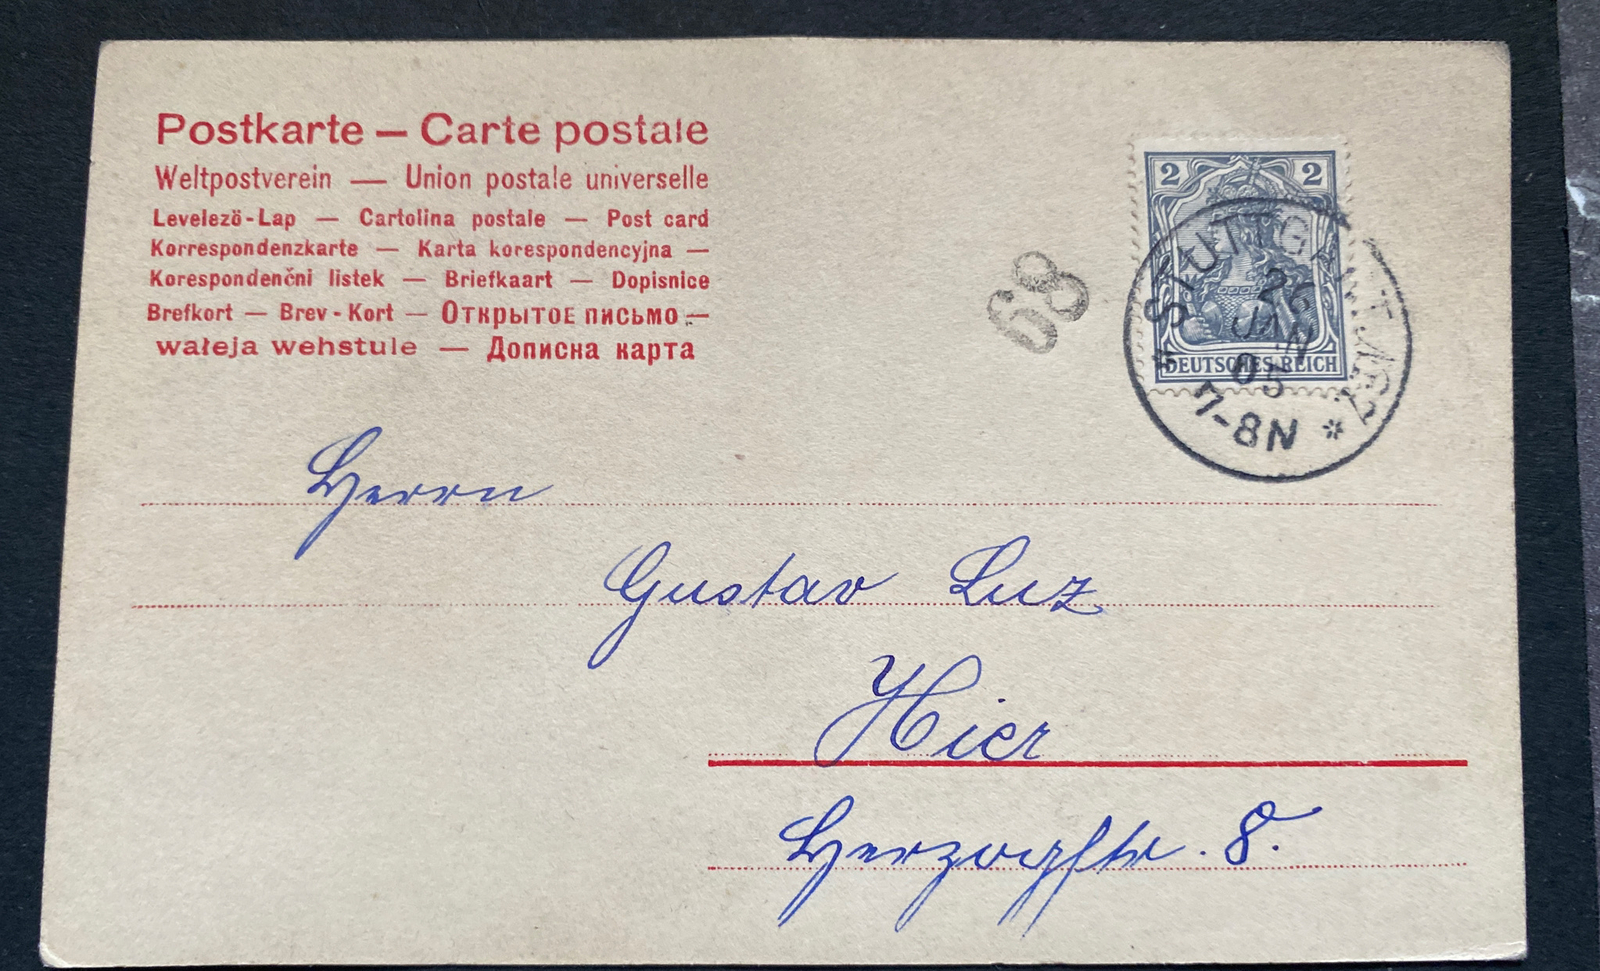 Postkarte — Carte postale
Weltpostverein — Union postale universelle
Levelezö-Lap — Cartolina postale — Post card
Korrespondenzkarte — Karta korespondencyjna —
Korespondenčni listek — Briefkaart — Dopisnice
Brefkort — Brev-Kort — Открытое письмо —
wałeja wehstule — Дописна карта
2 2
DEUTSCHES REICH
68
STUTTGART
JAN
05
7-8N
Herrn
Gustav Luz
Hier
Herzogstr. 8.